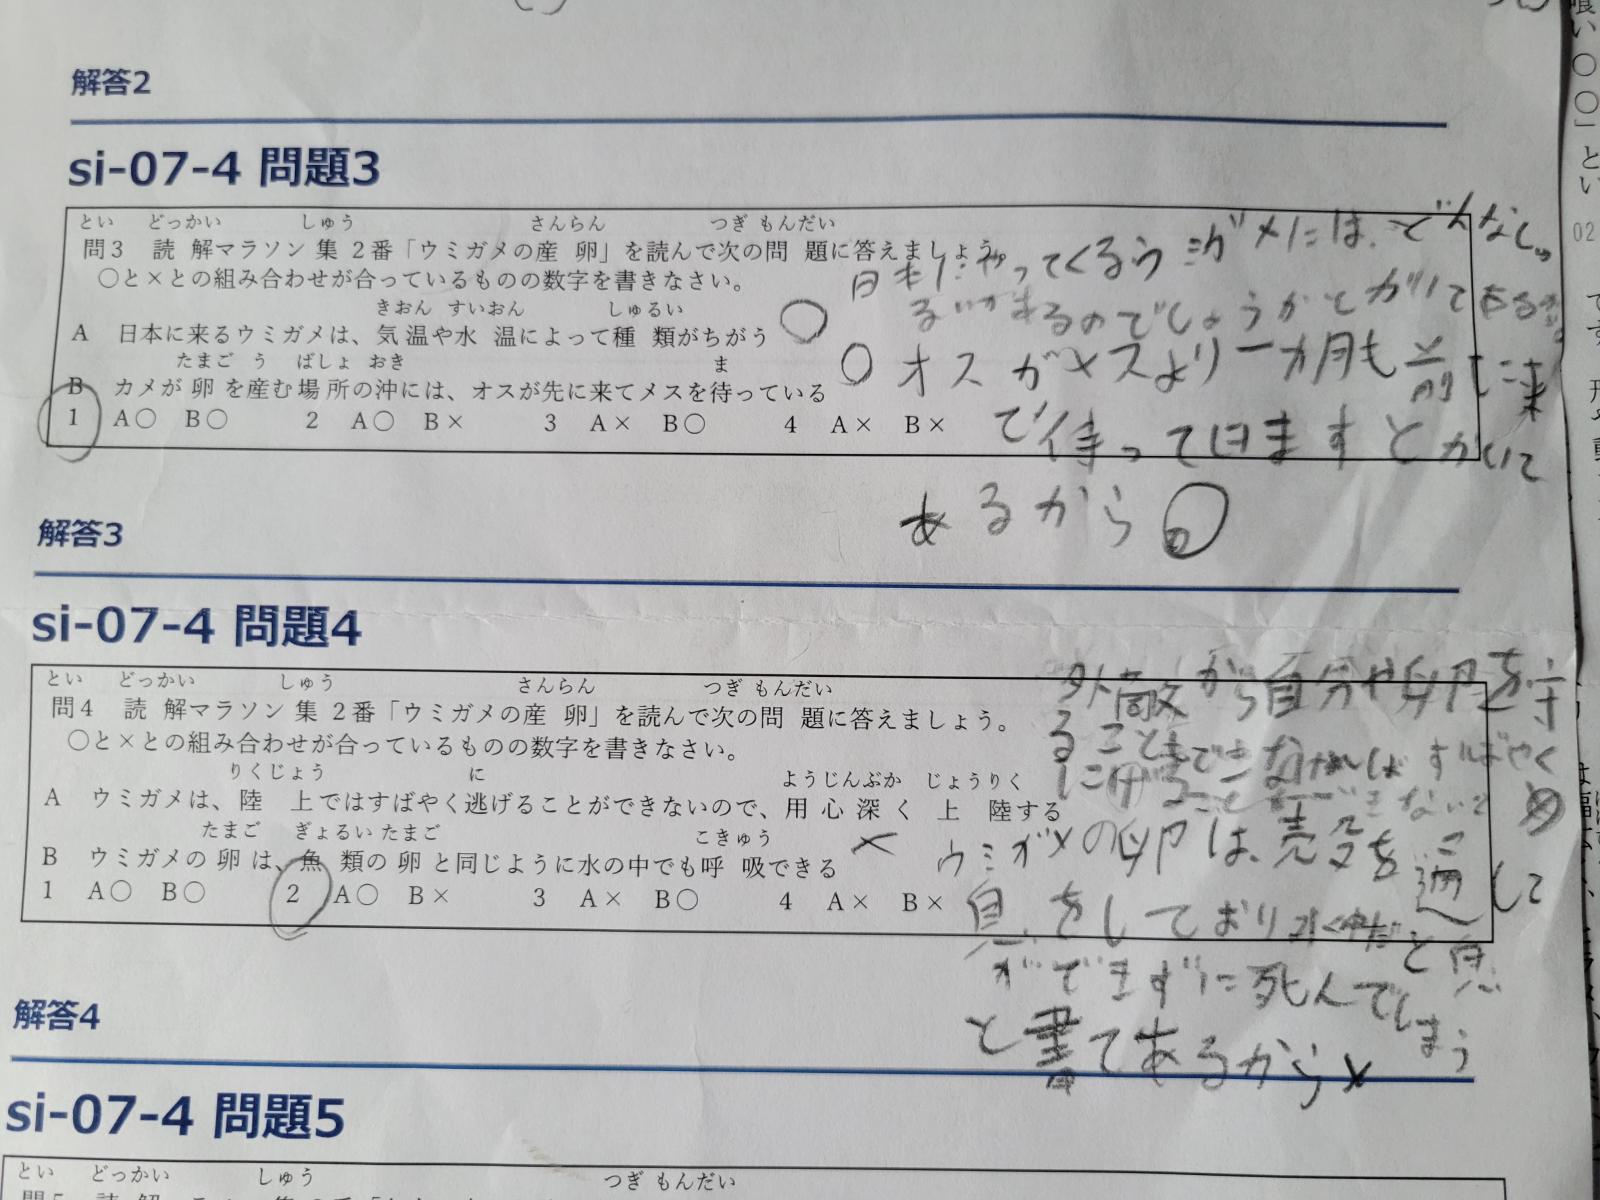 解答2
si-07-4 問題3
とい どっかい しゅう さんらん つぎ もんだい
問3 読解マラソン集2番「ウミガメの産卵」を読んで次の問題に答えましょう。
○と×との組み合わせが合っているものの数字を書きなさい。
きおん すいおん しゅるい
A 日本に来るウミガメは、気温や水温によって種類がちがう
たまご う ばしょ おき ま
B カメが卵を産む場所の沖には、オスが先に来てメスを待っている
1 A○ B○ 2 A○ B× 3 A× B○ 4 A× B×
日本にやってくるうミガメには、どんなしゅ
るいがあるのでしょうかとかいてあるから
○
○ オスがメスより一カ月も前に来
て待っていますとかいて
あるから○
解答3
si-07-4 問題4
とい どっかい しゅう さんらん つぎ もんだい
問4 読解マラソン集2番「ウミガメの産卵」を読んで次の問題に答えましょう。
○と×との組み合わせが合っているものの数字を書きなさい。
りくじょう に ようじんぶか じょうりく
A ウミガメは、陸上ではすばやく逃げることができないので、用心深く上陸する
たまご ぎょるい たまご こきゅう
B ウミガメの卵は、魚類の卵と同じように水の中でも呼吸できる
1 A○ B○ 2 A○ B× 3 A× B○ 4 A× B×
外敵から自分や卵を守
ることもできなければすばやく
にげることもできないと
× ウミガメの卵は、空気を通して
息をしており水中だと息
ができずに死んでしまう
と書てあるから×
解答4
si-07-4 問題5
とい どっかい しゅう つぎ もんだい
喰い○○」とい
02